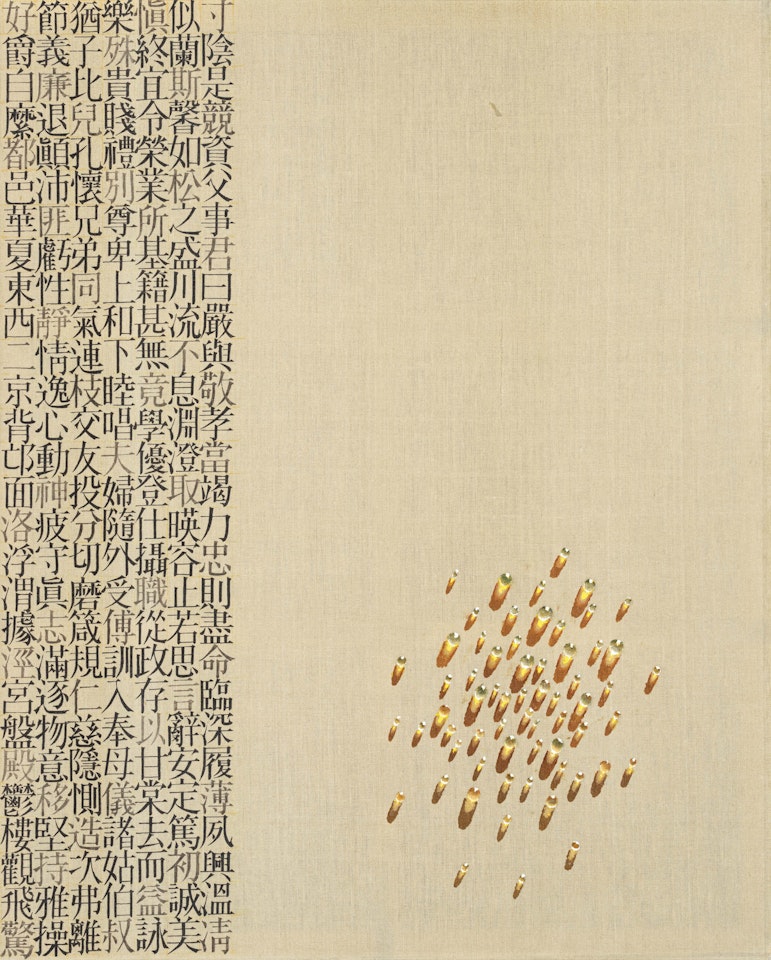 寸陰是競資父事君曰嚴與敬孝當竭力忠則盡命臨深履薄夙興溫凊
似蘭斯馨如松之盛川流不息淵澄取暎容止若思言辭安定篤初誠美
愼終宜令榮業所基籍甚無竟學優登仕攝職從政存以甘棠去而益詠
樂殊貴賤禮別尊卑上和下睦唱夫婦隨外受傅訓入奉母儀諸姑伯叔
猶子比兒孔懷兄弟同氣連枝交友投分切磨箴規仁慈隱惻造次弗離
節義廉退顚沛匪虧性靜情逸心動神疲守眞志滿逐物意移堅持雅操
好爵自縻都邑華夏東西二京背邙面洛浮渭據涇宮盤殿鬱樓觀飛驚